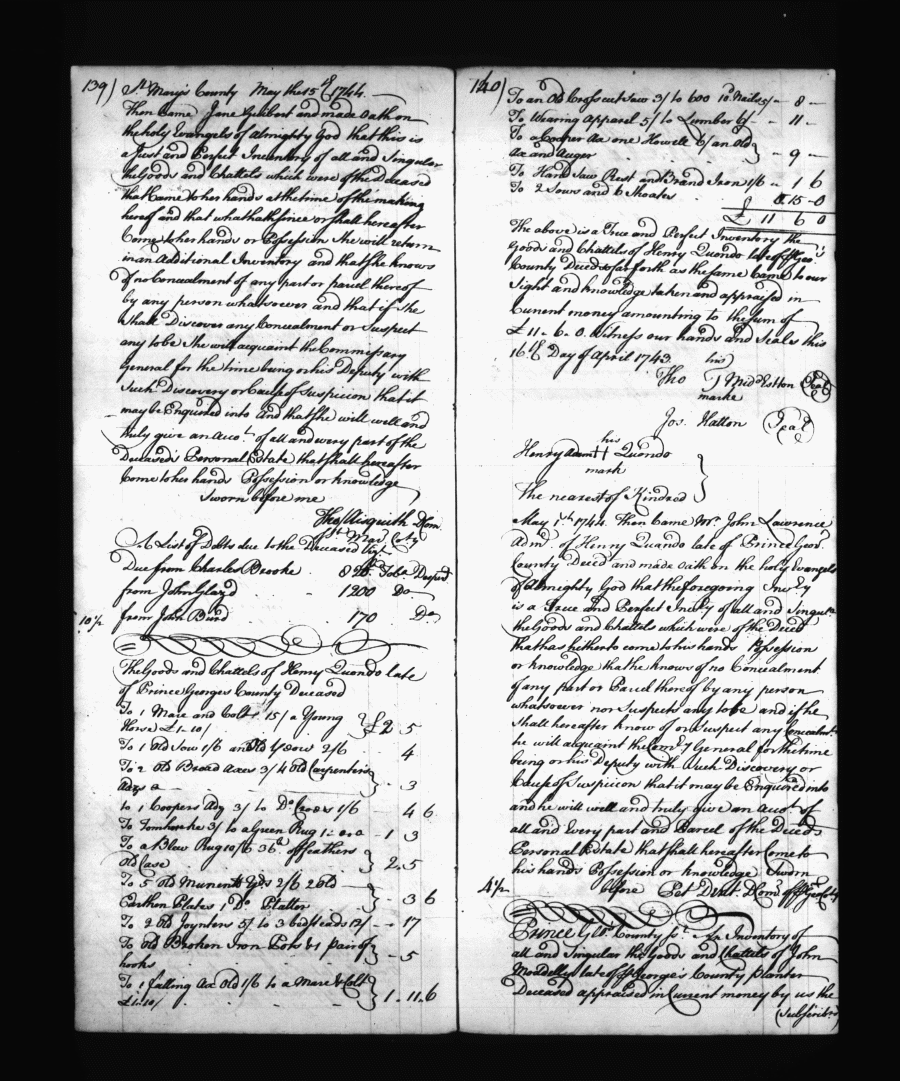 139)
St. Mary's County May the 15th 1744.
Then Came Jane Gilbert and made Oath on
the holy Evangels of Almighty God that this is
a Just and Perfect Inventory of all and Singular
the Goods and Chattels which were of the deceased
that Came to her hands at the time of the making
hereof and that what hath since or shall hereafter
Come to her hands or Possession She will return
in an Additional Inventory and that she knows
of no Concealment of any part or parcel thereof
by any person whatsoever and that if She
Shall Discover any Concealment or Suspect
any to be She will acquaint the Commissary
General for the time being or his Deputy with
Such Discovery or Cause of Suspicion that it
may be Enquired into And that she will well and
truly give an Acct. of all and every part of the
Deceased's Personal Estate that shall hereafter
Come to her hands Possession or knowledge
Sworn before me
Tho Aisquith D Com
St Mar: Cty
A List of Debts due to the Deceased Viz
Due from Charles Brooke 826 Toba. Desprd
from John Gloyd - 1200 Do
10½ from John Burd 170 Do
The Goods and Chattels of Henry Quando late
of Prince Georges County Deceased
To 1 Mare and Colt 15/ a Young
Horse £1..10/ } £2 5
To 1 Old Sow 1/6 an Old Yeow 2/6 4
To 2 Old Broad Axes 3/ 4 Old Carpenters
Adzs } - 3
to 1 Coopers Adz 3/ to Do. Croes 1/6 4 6
To 3/ to a Green Rug - 1 3
To a Blew Rug 10/6 36 of feathers
Old Case } 2..5
To 5 Old 2/6 2 old
Earthen Plates 1 Do. Platter } - 3 6
To 2 Old Joynters 5/ to 3 bedsteads 12/ - 17
To Old Broken Iron Pots & 1 pair of
hooks } - 5
To 1 falling Ax Old 1/6 to a Mare & Colt
£1..10/ } 1..11..6
140)
To an Old Cross cut Saw 3/ to 600 10d Nails 5/ - 8 -
To Wearing Apparel 5/ to Lumber 6/ - 11 -
To a Cooper Ax one Howell 6/ an Old
Ax and Auger } - 9 -
To Hand Saw Rest and Brand Iron 1/6 - 1 6
To 2 Sows and 6 Shoates 0 15 - 0
£ 11 6 0
The above is a True and Perfect Inventory the
Goods and Chattels of Henry Quando late of P Geo:s
County Deced so far forth as the same Came to our
Sight and knowledge taken and appraised in
Current money amounting to the Sum of
£11 - 6 - 0. Witness our hands and Seals this
16th Day of April 1743
his
Tho T Middleton (Seal)
marke
Jos. Hatton (Seal)
his
Henry Quando
mark
The nearest of Kindred
May 1st 1744. Then Came Mr. John Lawrence
Adm. of Henry Quando late of Prince Geo:
County Deced and made oath on the holy Evangels
of Almighty God that the foregoing Inv'ty
is a True and Perfect Inv'ty of all and Singular
the Goods and Chattels which were of the Deced
that has hitherto come to his hands Possession
or knowledge that he knows of no Concealment
of any part or Parcel thereof by any person
whatsoever nor Suspects any to be and if he
Shall hereafter know of or Suspect any Concealmt
he will acquaint the Com'y General for the time
being or his Deputy with Such Discovery or
Cause of Suspicion that it may be Enquired into
and he will well and truly give an Acct. of
all and Every part and Parcel of the Deceds
Personal Estate that shall hereafter Come to
his hands Possession or knowledge Sworn
4½ before
Prince County An Inventory of
all and Singular the Goods and Chattels of John
late of P George's County Planter
Deceased appraised in Current money by us the
(Subscribrs